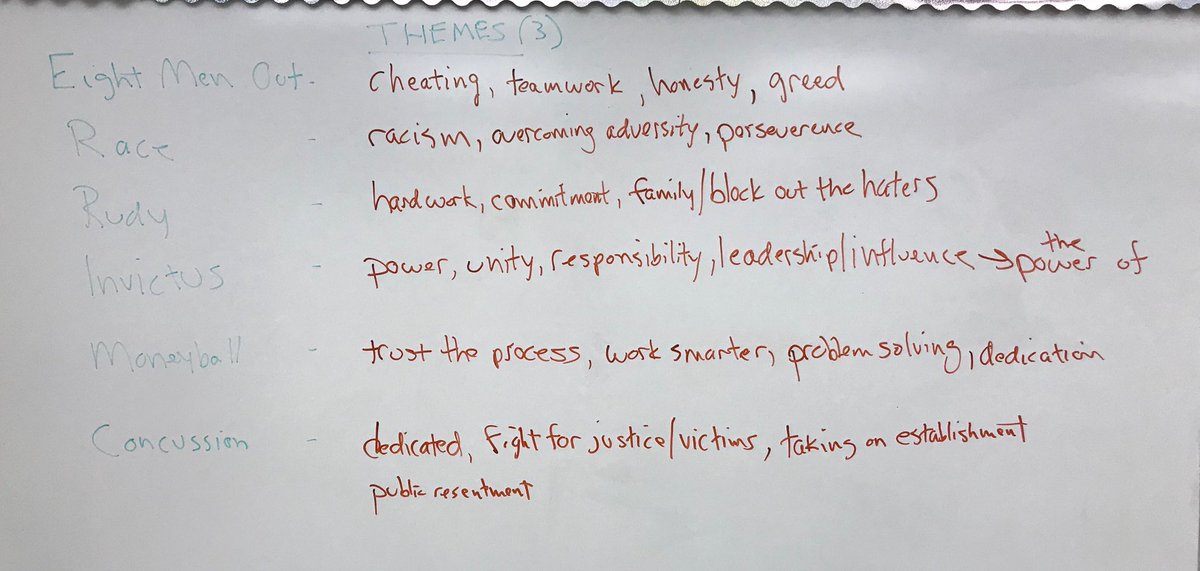 THEMES (3)
Eight Men Out - cheating, teamwork, honesty, greed
Race - racism, overcoming adversity, porseverence
Rudy - hardwork, commitment, family/block out the haters
Invictus - power, unity, responsibility, leadership/influence → the power of
Moneyball - trust the process, work smarter, problem solving, dedication
Concussion - dedicated, Fight for justice/victims, taking on establishment
public resentment